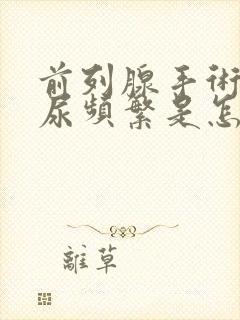 前列腺手术
尿频繁是怎
離草